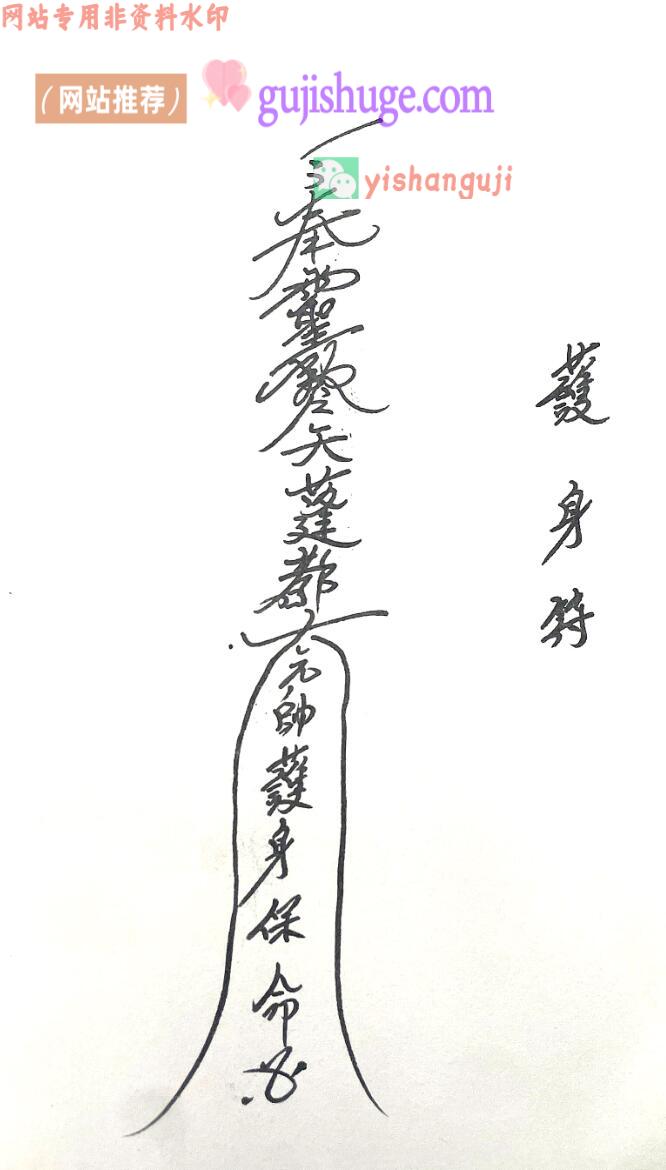 网站专用非资料水印
（网站推荐） gujishuge.com
yishanguji
護身符
奉
聖
天蓬都大元帥護身保命